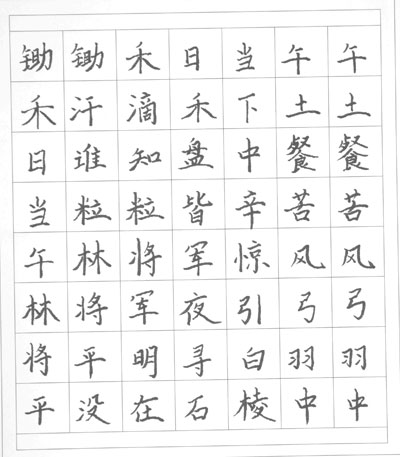 锄锄禾日当午午
禾汗滴禾下土土
日谁知盘中餐餐
当粒粒皆辛苦苦
午林将军惊风风
林将军夜引弓弓
将平明寻白羽羽
平没在石棱中中